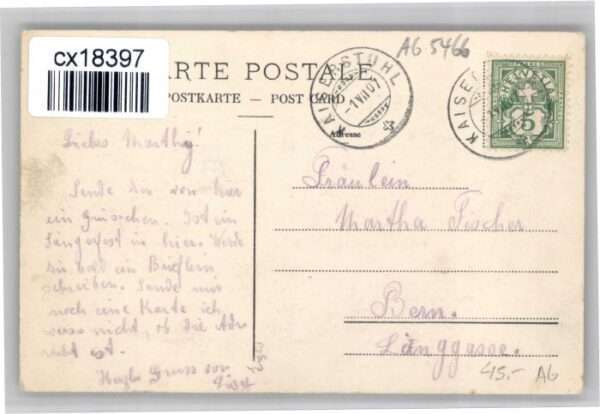 cx18397
CARTE POSTALE
POSTKARTE — POST CARD
AG 5466
KAISERSTUHL
-1.VII.07
KAISER
HELVETIA
5
Adresse
Liebes Marthy!
Sende dir von hier
ein Grüsschen. Ist ein
Sängerfest in hier. Werde
dir bald ein Brieflein
schreiben. Sende mir
noch eine Karte ich
weiss nicht, ob die Adr.
recht ist.
Gruss von
Fräulein
Martha Fischer
Bern.
Länggasse.
45.- AG